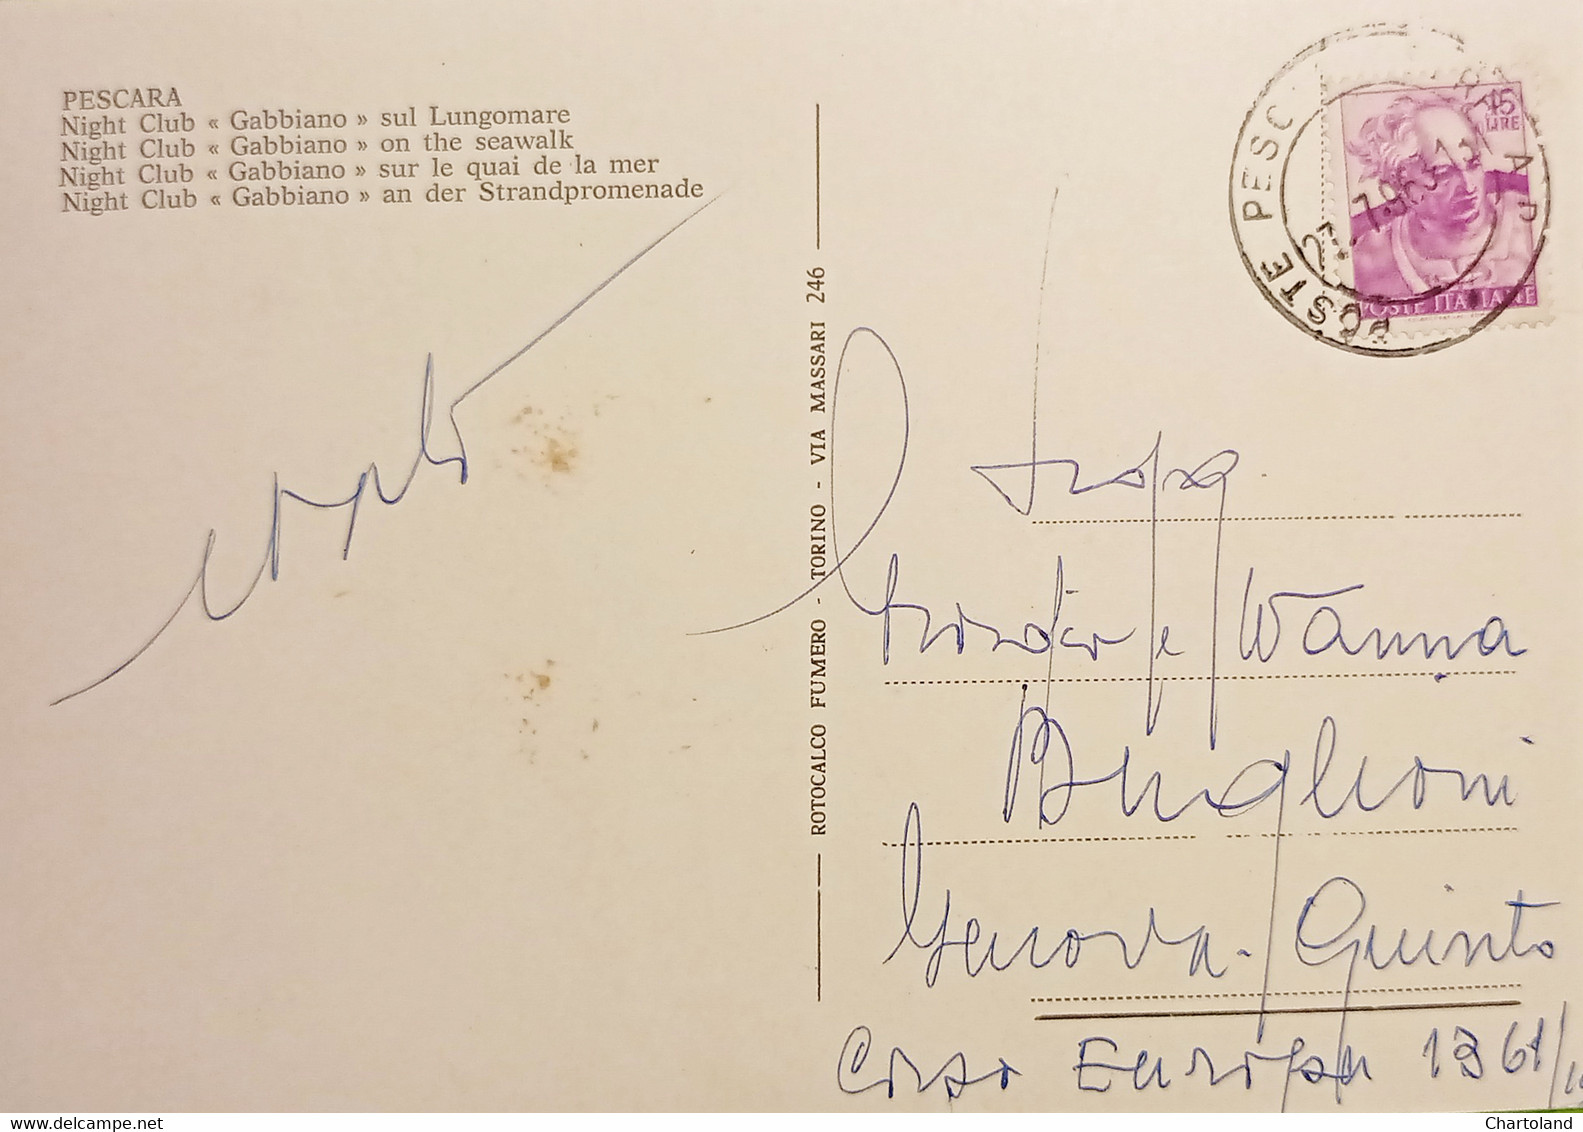 PESCARA
Night Club « Gabbiano » sul Lungomare
Night Club « Gabbiano » on the seawalk
Night Club « Gabbiano » sur le quai de la mer
Night Club « Gabbiano » an der Strandpromenade
ROTOCALCO FUMERO - TORINO - VIA MASSARI 246
15
LIRE
POSTE ITALIANE
POSTE PESCARA
e Wanna
Buglioni
Genova-Quinto
Corso Europa 1361/
Chartoland